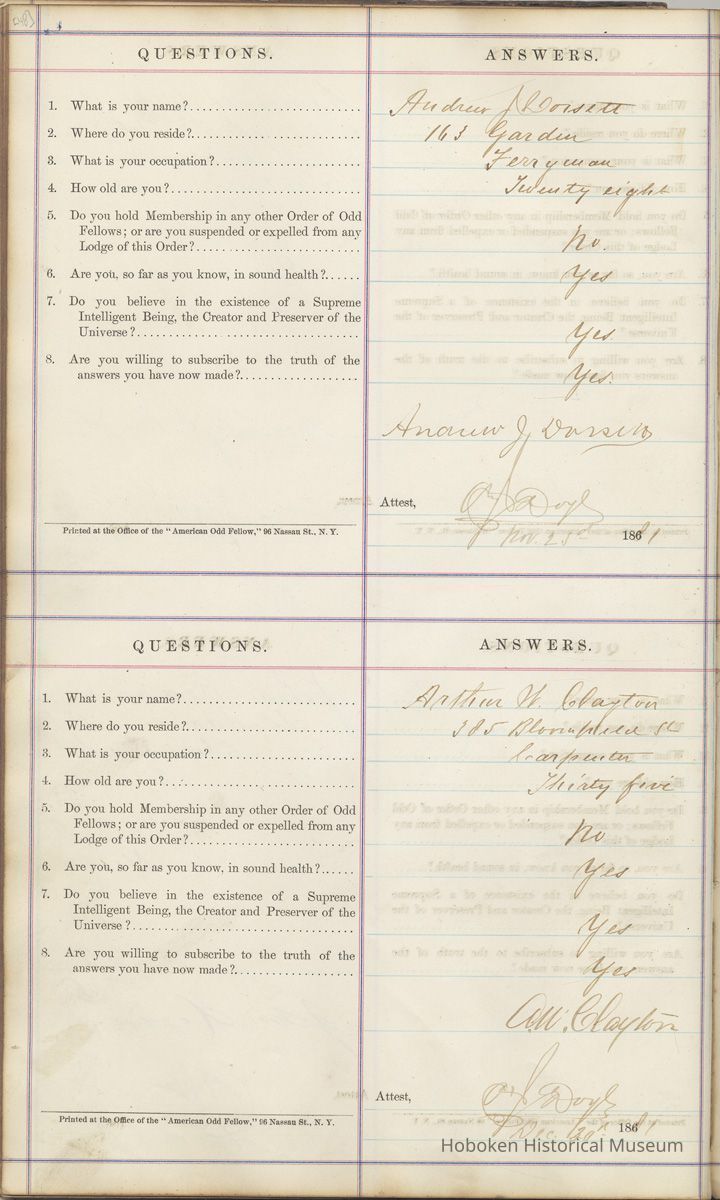 QUESTIONS. ANSWERS.
1. What is your name? Andrew J Dorsett
2. Where do you reside? 163 Garden
3. What is your occupation? Ferryman
4. How old are you? Twenty eight
5. Do you hold Membership in any other Order of Odd
Fellows; or are you suspended or expelled from any
Lodge of this Order? No.
6. Are you, so far as you know, in sound health? Yes
7. Do you believe in the existence of a Supreme
Intelligent Being, the Creator and Preserver of the
Universe? Yes
8. Are you willing to subscribe to the truth of the
answers you have now made? Yes.
Andrew J Dorsett
Attest,
Printed at the Office of the "American Odd Fellow," 96 Nassau St., N. Y. Nov. 186 81
QUESTIONS. ANSWERS.
1. What is your name? Arthur W. Clayton
2. Where do you reside? 385 Bloomfield St
3. What is your occupation? Carpenter
4. How old are you? Thirty five
5. Do you hold Membership in any other Order of Odd
Fellows; or are you suspended or expelled from any
Lodge of this Order? No
6. Are you, so far as you know, in sound health? Yes
7. Do you believe in the existence of a Supreme
Intelligent Being, the Creator and Preserver of the
Universe? Yes
8. Are you willing to subscribe to the truth of the
answers you have now made? Yes
A.W. Clayton
Attest,
Printed at the Office of the "American Odd Fellow," 96 Nassau St., N. Y. Dec 186 81
Hoboken Historical Museum